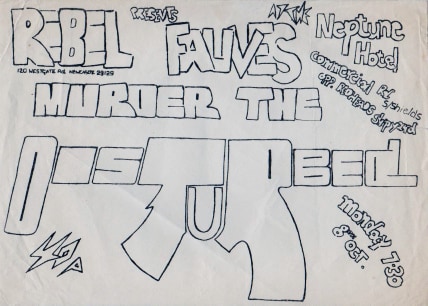 REBEL
PRESENTS
FAUVES
AT THE
Neptune
Hotel
120 WESTGATE RD. NEWCASTLE
Commercial Rd
S/Shields
opp.
Shipyard
MURDER THE
DiSTURBED
Monday 7.30
8 OCT.